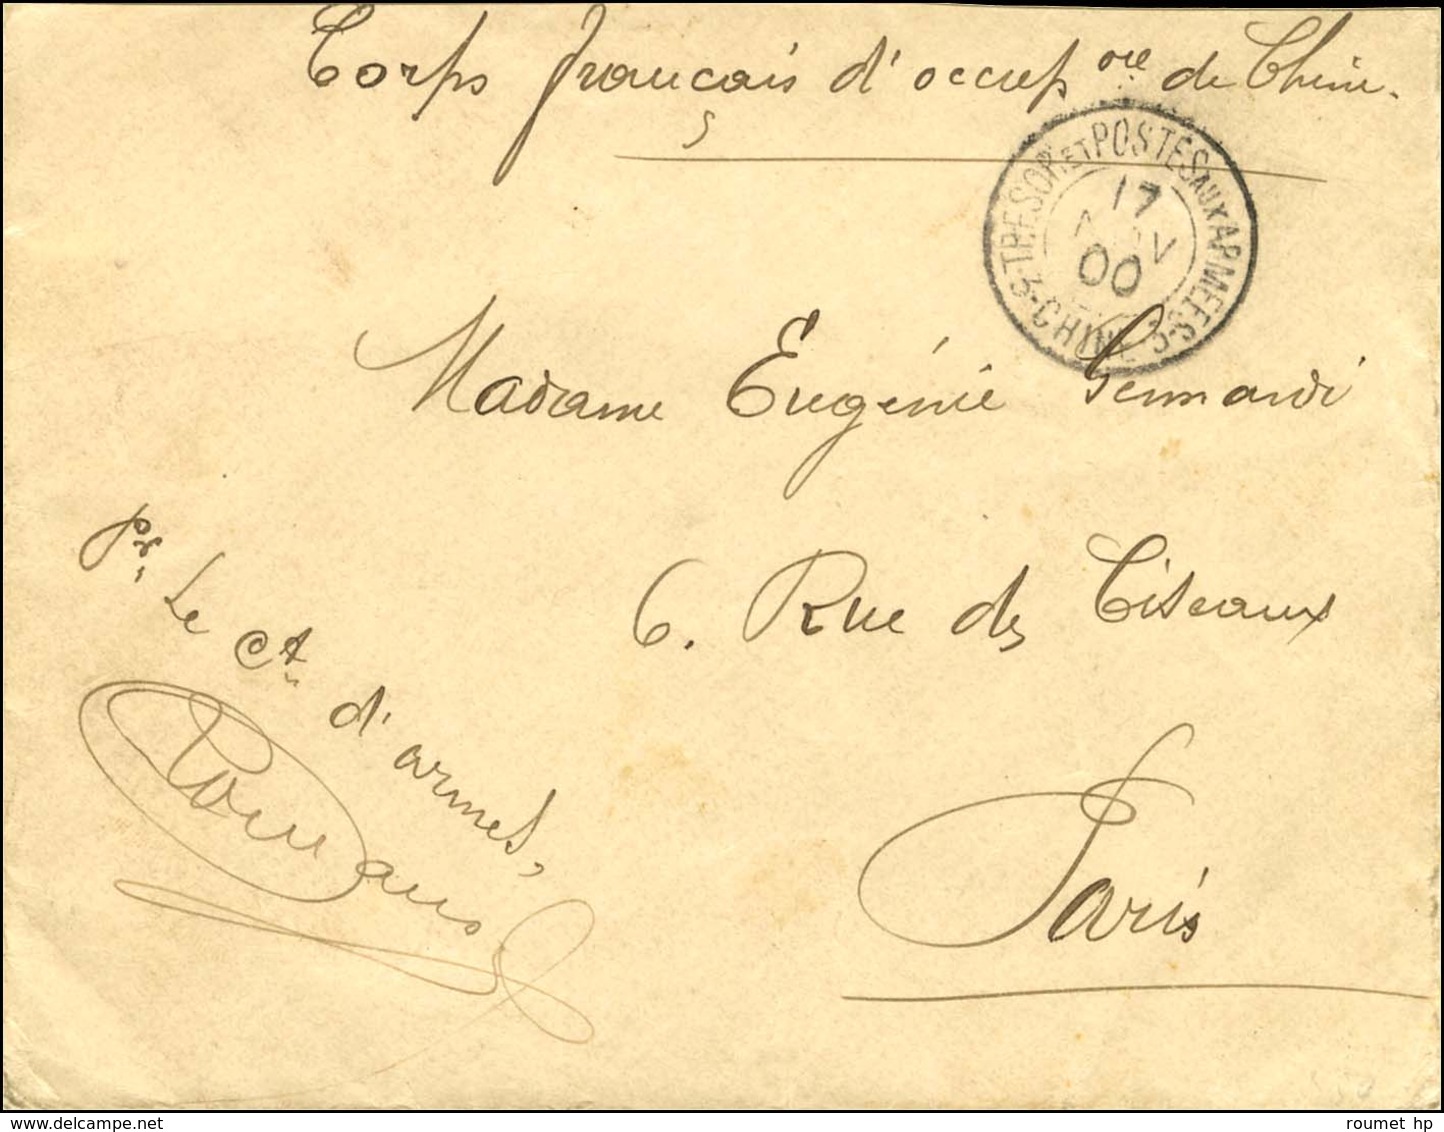 Corps français d'occup on de Chine.
TRESOR ET POSTES AUX ARMEES
CHINE
17
NOV
00
Madame Eugénie Gennardi
6. Rue des Ciseaux
Paris
Pr. Le Ct. d'armes,
roumet hp